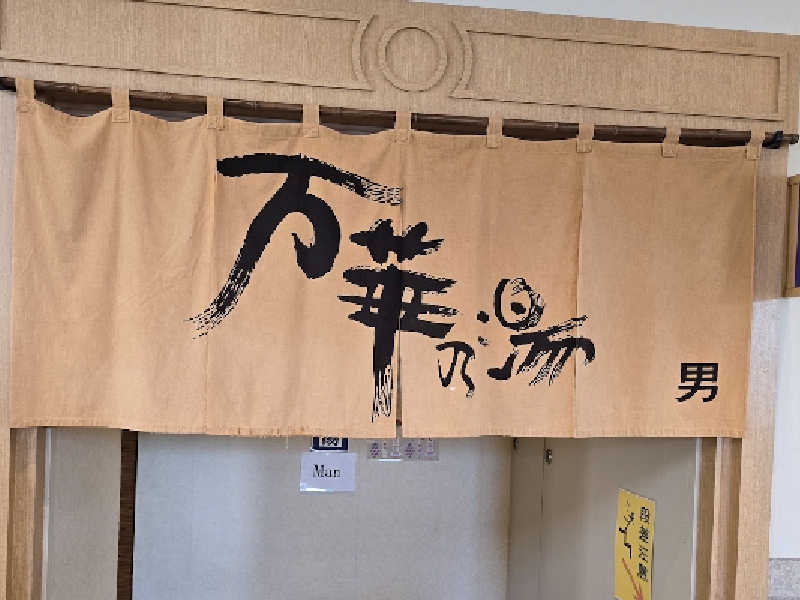 万華乃湯
男
Man